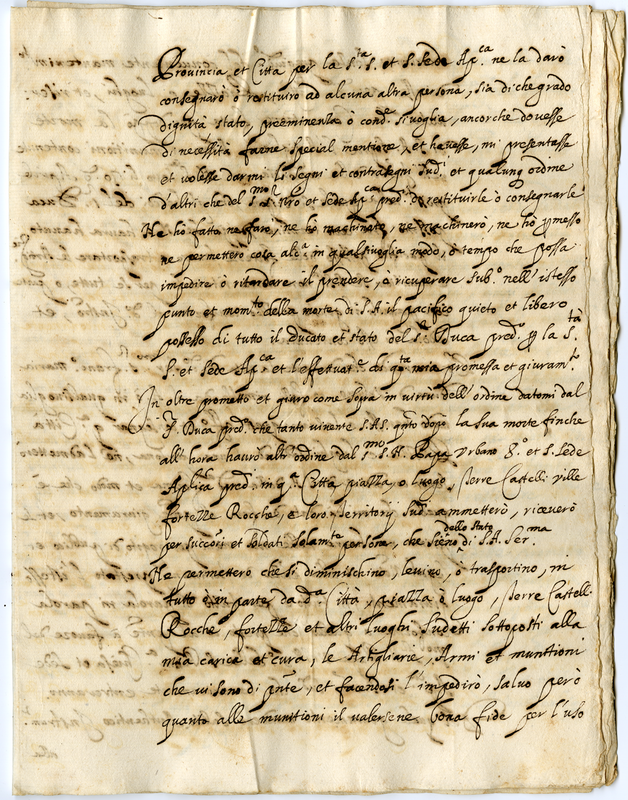 Provincia et Città per la S.tà S. et S. Sede Ap.ca ne la darò
consegnarò ò restituirò ad alcuna altra persona, sia di che grado
dignità stato, preeminenza ò cond.e si voglia, ancorche dovesse
di necessità farne special mentione, et havesse, mi presentasse
et volesse darmi li segni et contrasegni sud.i et qualunq ordine
d'altri che del s.mo S. Nrõ et Sede Ap.ca pred.a di restituirle ò consegnarle
Ne hò fatto ne farò, ne hò machinato, ne machinerò, ne hò ꝑmesso
ne permetterò cosa alc.a in qualsivoglia modo, ò tempo che possa
impedire ò ritardare il prendere, ò ricuperare sub.o nell'istesso
punto et mom.to della morte di S.A. il pacifico quieto et libero
possesso di tutto il Ducato et stato del s.r Duca pred.o ꝑ la S.tà
S. et Sede Ap.ca et l'effettuat.e di q.ta mia promessa et giuram.to
In oltre prometto et giuro come sopra in virtù dell'ordine datomi dal
S. Duca pred.o che tanto vivente S.A.S. qnto dopo la sua morte finche
all'hora haurò altr'ordine dal s.mo S. N. Papa Urbano 8.o et S. Sede
Aplica pred.a in q.a Città piazza, o luogo, Terre Castelli ville
fortezze Rocche, e loro Territorij sud.i ammetterò, riceverò
per succorsi et soldati solam.te persone, che sieno dello stato di S.A. Ser.ma
Ne permetterò che si diminischino, levino, ò trasportino, in
tutto ò in parte da d.a Città, piazza ò luogo, Terre Castelli
Rocche, fortezze et altri luoghi sudetti sottoposti alla
mia carica et cura, le Artigliarie, Armi et munitioni
che vi sono di pnte, et facendosi l'impedirò, salvo però
quanto alle munitioni il valersene bona fide per l'uso